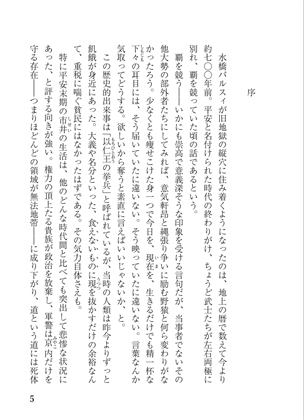 序
水橋パルスィが旧地獄の縦穴に住み着くようになったのは、地上の暦で数えて今より
約七〇〇年前。平安と名付けられた時代の終わりがけ、ちょうど武士たちが左右両極に
別れ、覇を競っていた頃の話であるという。
覇を競う――いかにも崇高で意義深そうな印象を受ける言句だが、当事者でないその
他大勢の部外者たちにしてみれば、意気軒昂と縄張り争いに励む野猿と何ら変わりがな
かったろう。少なくとも痩せこけた身一つで今日を、現在を、生きるだけでも精一杯な
下々の耳目には、そう届いていたに違いない。そう映っていたに違いない。言葉なんか
気取ってどうする。欲しいから奪うと素直に言えばいいじゃないか、と。
この歴史的出来事は「以仁王の挙兵」と呼ばれているが、当時の人類は昨今よりずっと
飢餓が身近にあった。大義や名分といった、食えないものに現を抜かすだけの余裕なん
て、重税に喘ぐ貧民にはなかったはずである。その気力自体さえも。
特に平安末期の市井の生活は、他のどんな時代間と比べても突出して悲惨な状況に
あった、と評する向きが強い。権力の頂上たる貴族が政治を放棄し、軍警は京内だけを
守る存在――つまりほとんどの領域が無法地帯――に成り下がり、道という道には死体
5